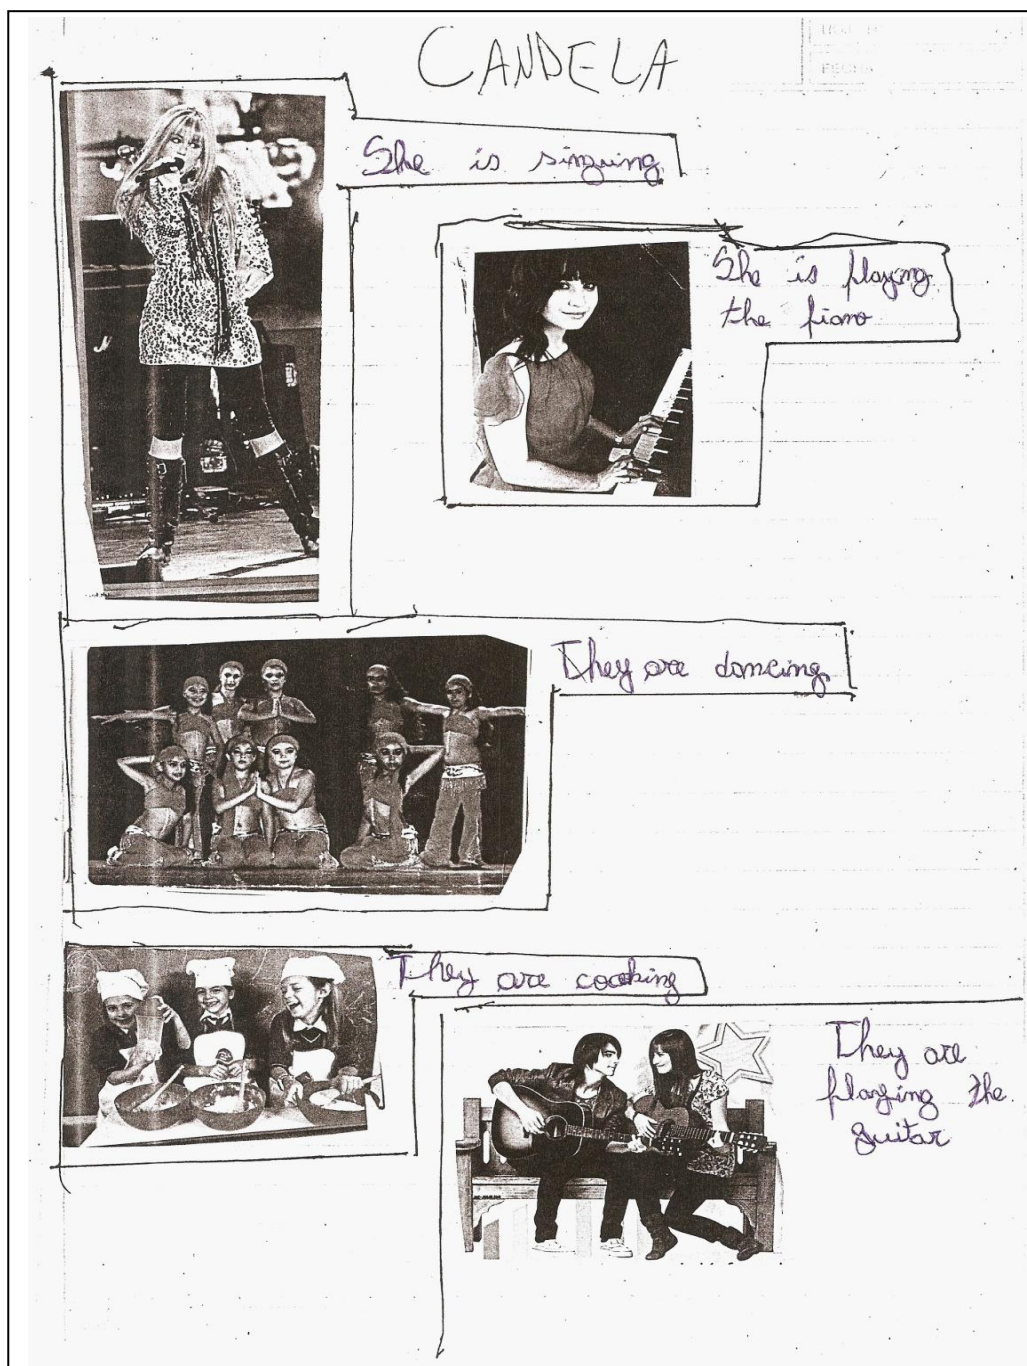 CANDELA
FECHA
She is singuing
She is playing
the piano
They are dancing
They are cooking
They are
playing the
guitar